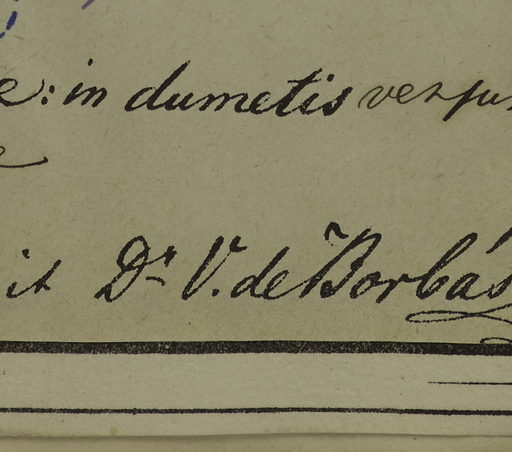 e: in dumetis versus
e
it Dr. V. de Borbás